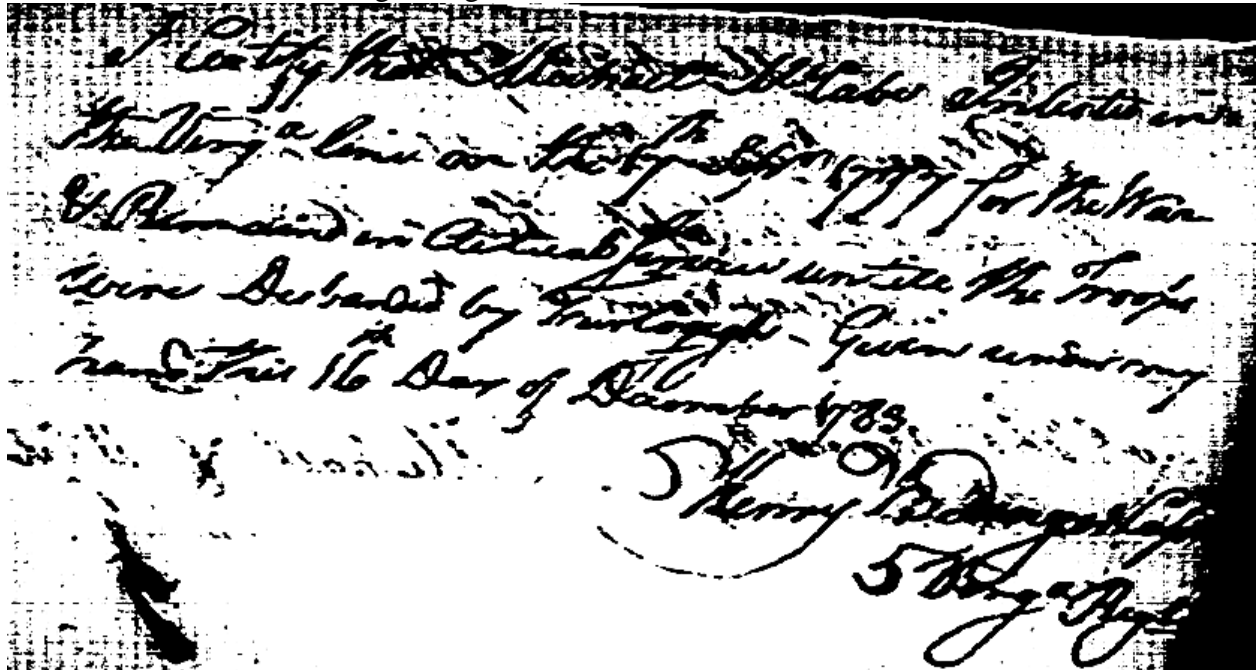 I Certify that Michael McCabe Inlisted in
the Virgᵃ line on the 6ᵗʰ 1777 for the War
& Remaind in Actual Service untill the Troops
were Disbanded by Furlough – Given under my
hand this 16ᵗʰ Day of December 1783.
Henry Capt
5 Virgᵃ Regt